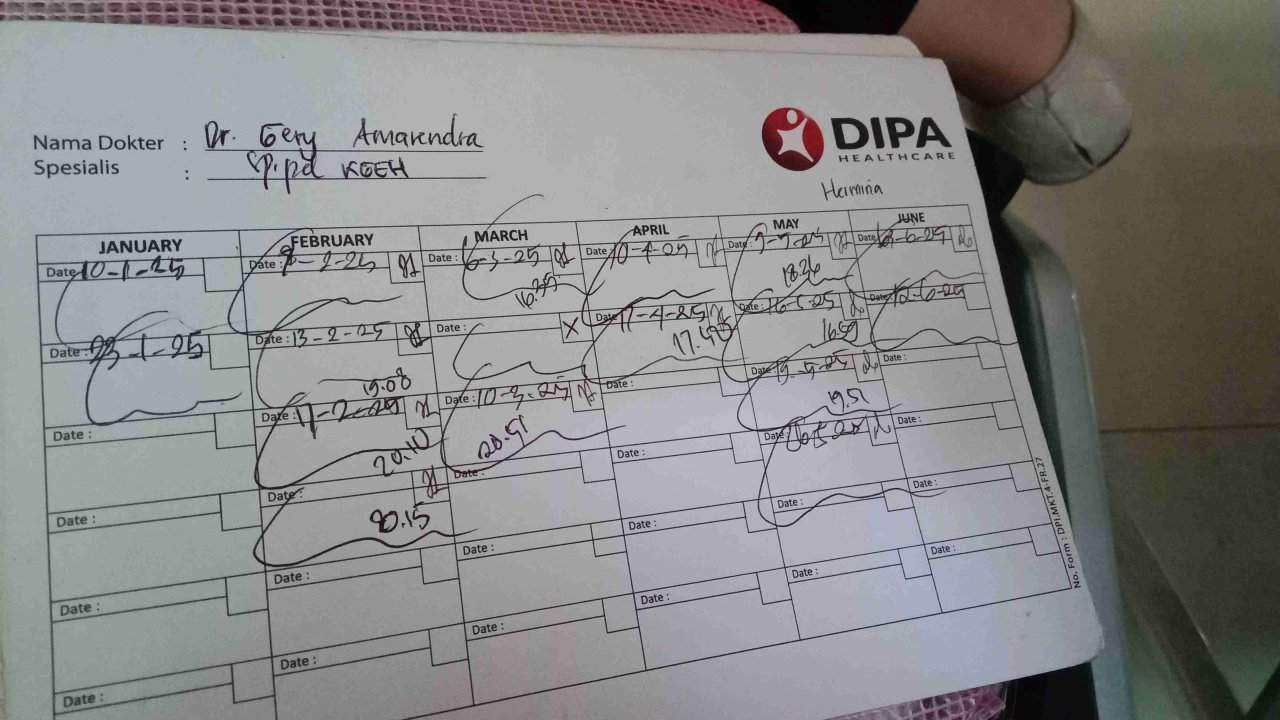 Nama Dokter : Dr. Gery Amarendra
Spesialis : Sp.pd KGEH
DIPA
HEALTHCARE
Hermina
JANUARY FEBRUARY MARCH APRIL MAY JUNE
Date : 10-1-25
Date : 23-1-25
Date :
Date :
Date :
Date :
Date : 7-2-25
Date : 13-2-25
19.08
Date : 17-2-25
20.10
Date :
20.15
Date :
Date :
Date : 6-3-25
16.35
Date : X
Date : 10-3-25
20.51
Date :
Date :
Date :
Date : 10-4-25
Date : 11-4-25
Date :
Date :
Date :
Date :
Date :
18.26
Date : 16-5-25
16.59
Date : 19-5-25
19.51
Date :
Date :
Date :
Date :
Date : 12-6-25
Date :
Date :
Date :
Date :
No. Form : DPI.MKT-4-FR.27